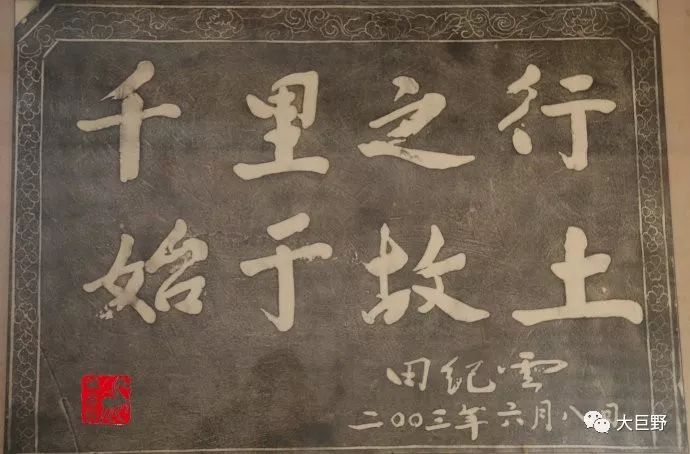 千里之行
始于故土
田纪雲
二〇〇三年六月八日
大巨野